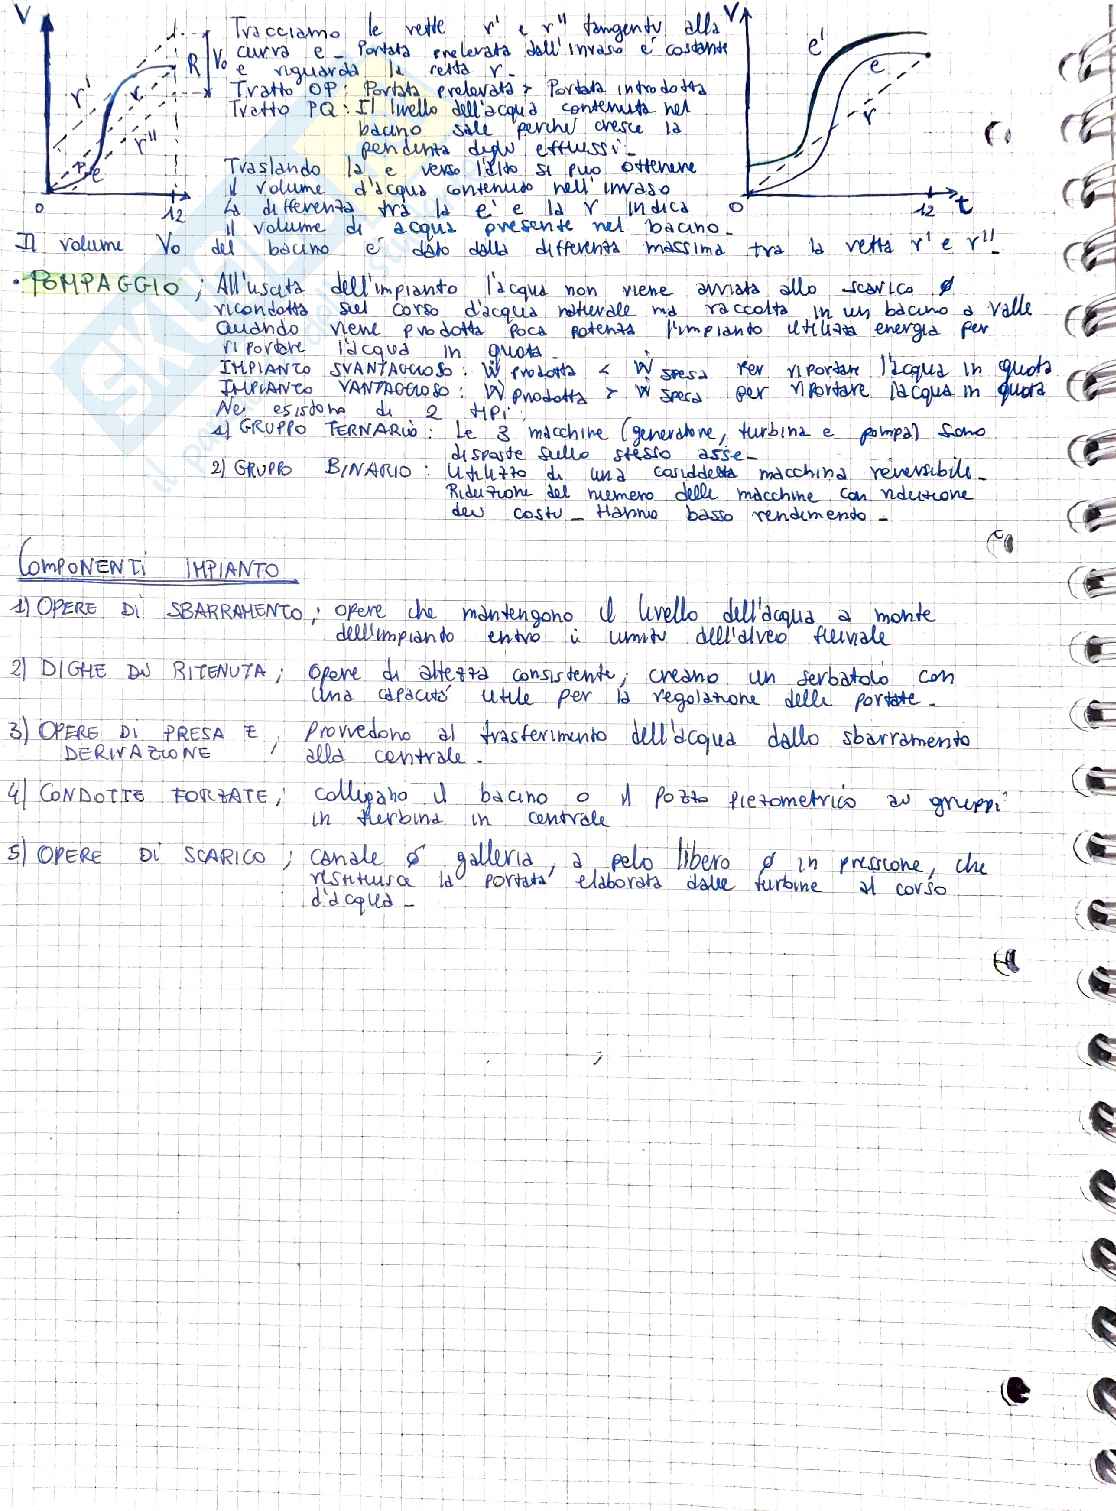 V
r'
r
r"
P
e
R
V₀
0
12
Tracciamo le rette r' e r" tangenti alla
curva e_ Portata prelevata dall'invaso e' costante
e riguarda la retta r_
Tratto OP: Portata prelevata > Portata introdotta
Tratto PQ: Il livello dell'acqua contenuta nel
bacino sale perché cresce la
pendenza degli efflussi_
Traslando la e verso l'alto si può ottenere
il volume d'acqua contenuto nell'invaso
La differenza tra la e' e la r indica
il volume di acqua presente nel bacino_
V
e'
e
r
0
12
t
Il volume V₀ del bacino e' dato dalla differenza massima tra la retta r' e r"_
• POMPAGGIO; All'uscita dell'impianto l'acqua non viene avviata allo scarico o
ricondotta sul corso d'acqua naturale ma raccolta in un bacino a valle
Quando viene prodotta poca potenza l'impianto utilizza energia per
riportare l'acqua in quota_
IMPIANTO SVANTAGGIOSO: Ẇ prodotta < Ẇ spesa per riportare l'acqua in quota
IMPIANTO VANTAGGIOSO: Ẇ prodotta > Ẇ spesa per riportare l'acqua in quota
Ne esistono di 2 tipi:
1) GRUPPO TERNARIO: Le 3 macchine (generatore, turbina e pompa) sono
disposte sullo stesso asse_
2) GRUPPO BINARIO: Utilizzo di una cosiddetta macchina reversibile_
Riduzione del numero delle macchine con riduzione
dei costi_ Hanno basso rendimento_
COMPONENTI IMPIANTO
1) OPERE DI SBARRAMENTO; opere che mantengono il livello dell'acqua a monte
dell'impianto entro i limiti dell'alveo fluviale
2) DIGHE DI RITENUTA; opere di altezza consistente, creano un serbatoio con
una capacità utile per la regolazione delle portate_
3) OPERE DI PRESA E
DERIVAZIONE; provvedono al trasferimento dell'acqua dallo sbarramento
alla centrale_
4) CONDOTTE FORZATE; collegano il bacino o il pozzo piezometrico ai gruppi
in turbina in centrale
5) OPERE DI SCARICO; canale o galleria, a pelo libero o in pressione, che
restituisce la portata elaborata dalle turbine al corso
d'acqua_